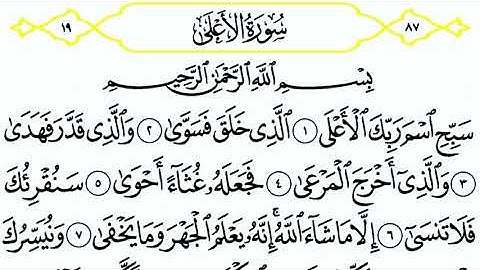 ٨٧ سُورَةُ الأَعْلَى ١٩
بِسْمِ اللَّهِ الرَّحْمَٰنِ الرَّحِيمِ
سَبِّحِ اسْمَ رَبِّكَ الْأَعْلَى ١ الَّذِي خَلَقَ فَسَوَّىٰ ٢ وَالَّذِي قَدَّرَ فَهَدَىٰ
٣ وَالَّذِي أَخْرَجَ الْمَرْعَىٰ ٤ فَجَعَلَهُ غُثَاءً أَحْوَىٰ ٥ سَنُقْرِئُكَ
فَلَا تَنسَىٰ ٦ إِلَّا مَا شَاءَ اللَّهُ ۚ إِنَّهُ يَعْلَمُ الْجَهْرَ وَمَا يَخْفَىٰ ٧ وَنُيَسِّرُكَ